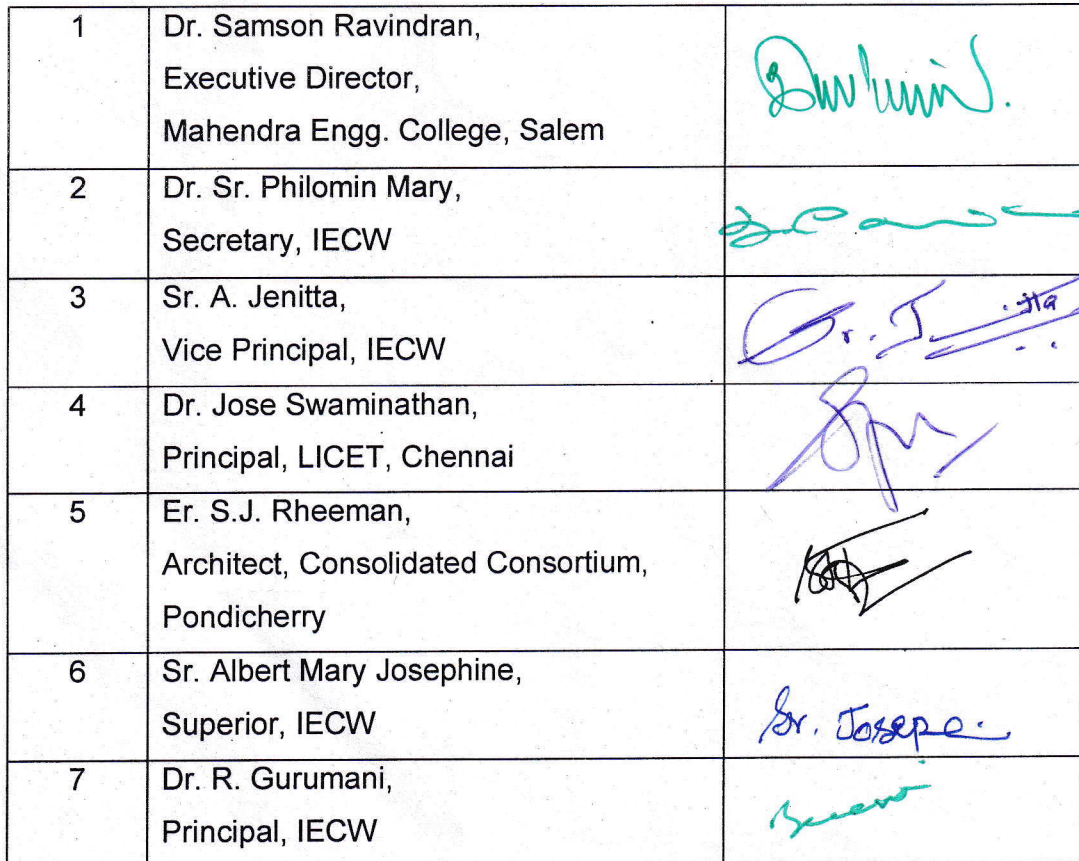 1
Dr. Samson Ravindran,
Executive Director,
Mahendra Engg. College, Salem
2
Dr. Sr. Philomin Mary,
Secretary, IECW
3
Sr. A. Jenitta,
Vice Principal, IECW
Sr. J
4
Dr. Jose Swaminathan,
Principal, LICET, Chennai
5
Er. S.J. Rheeman,
Architect, Consolidated Consortium,
Pondicherry
6
Sr. Albert Mary Josephine,
Superior, IECW
Sr.
7
Dr. R. Gurumani,
Principal, IECW